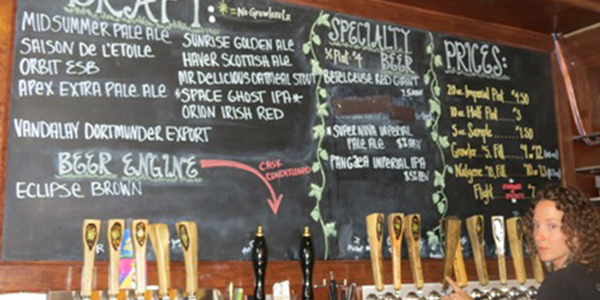 DRAFT:
*=NO GROWLERS
MIDSUMMER PALE ALE
SAISON DE L'ETOILE
ORBIT ESB
APEX EXTRA PALE ALE
VANDALAY DORTMUNDER EXPORT
SUNRISE GOLDEN ALE
HAVER SCOTTISH ALE
MR DELICIOUS OATMEAL STOUT
*SPACE GHOST IPA*
ORION IRISH RED
BEER ENGINE
ECLIPSE BROWN
CASK
CONDITIONED
SPECIALTY
BEER
BETELGEUSE RED GIANT
*SUPERNOVA IMPERIAL
PALE ALE
PANGÆA IMPERIAL IPA
PRICES:
20oz. Imperial Pint $4.50
10oz. Half Pint $3
5oz. Sample $1.50
Growler $5, Fill
Nalgene $18, Fill
Flight